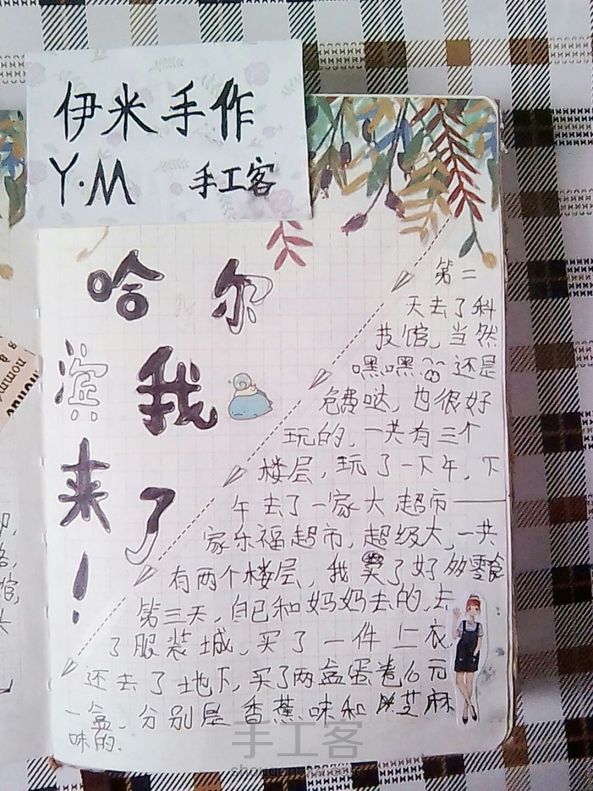 伊米手作
Y·M 手工客
哈尔
滨我
来了
!
第二
天去了科
技馆,当然
嘿嘿 还是
免费哒,也很好
玩的,一共有三个
楼层,玩了一下午,下
午去了一家大超市——
家乐福超市,超级大,一共
有两个楼层,我买了好多零食
第三天,自己和妈妈去的,去
了服装城,买了一件上衣,
还去了地下,买了两盒蛋卷6元
一盒,分别是香蕉味和芝麻
味的.
手工客